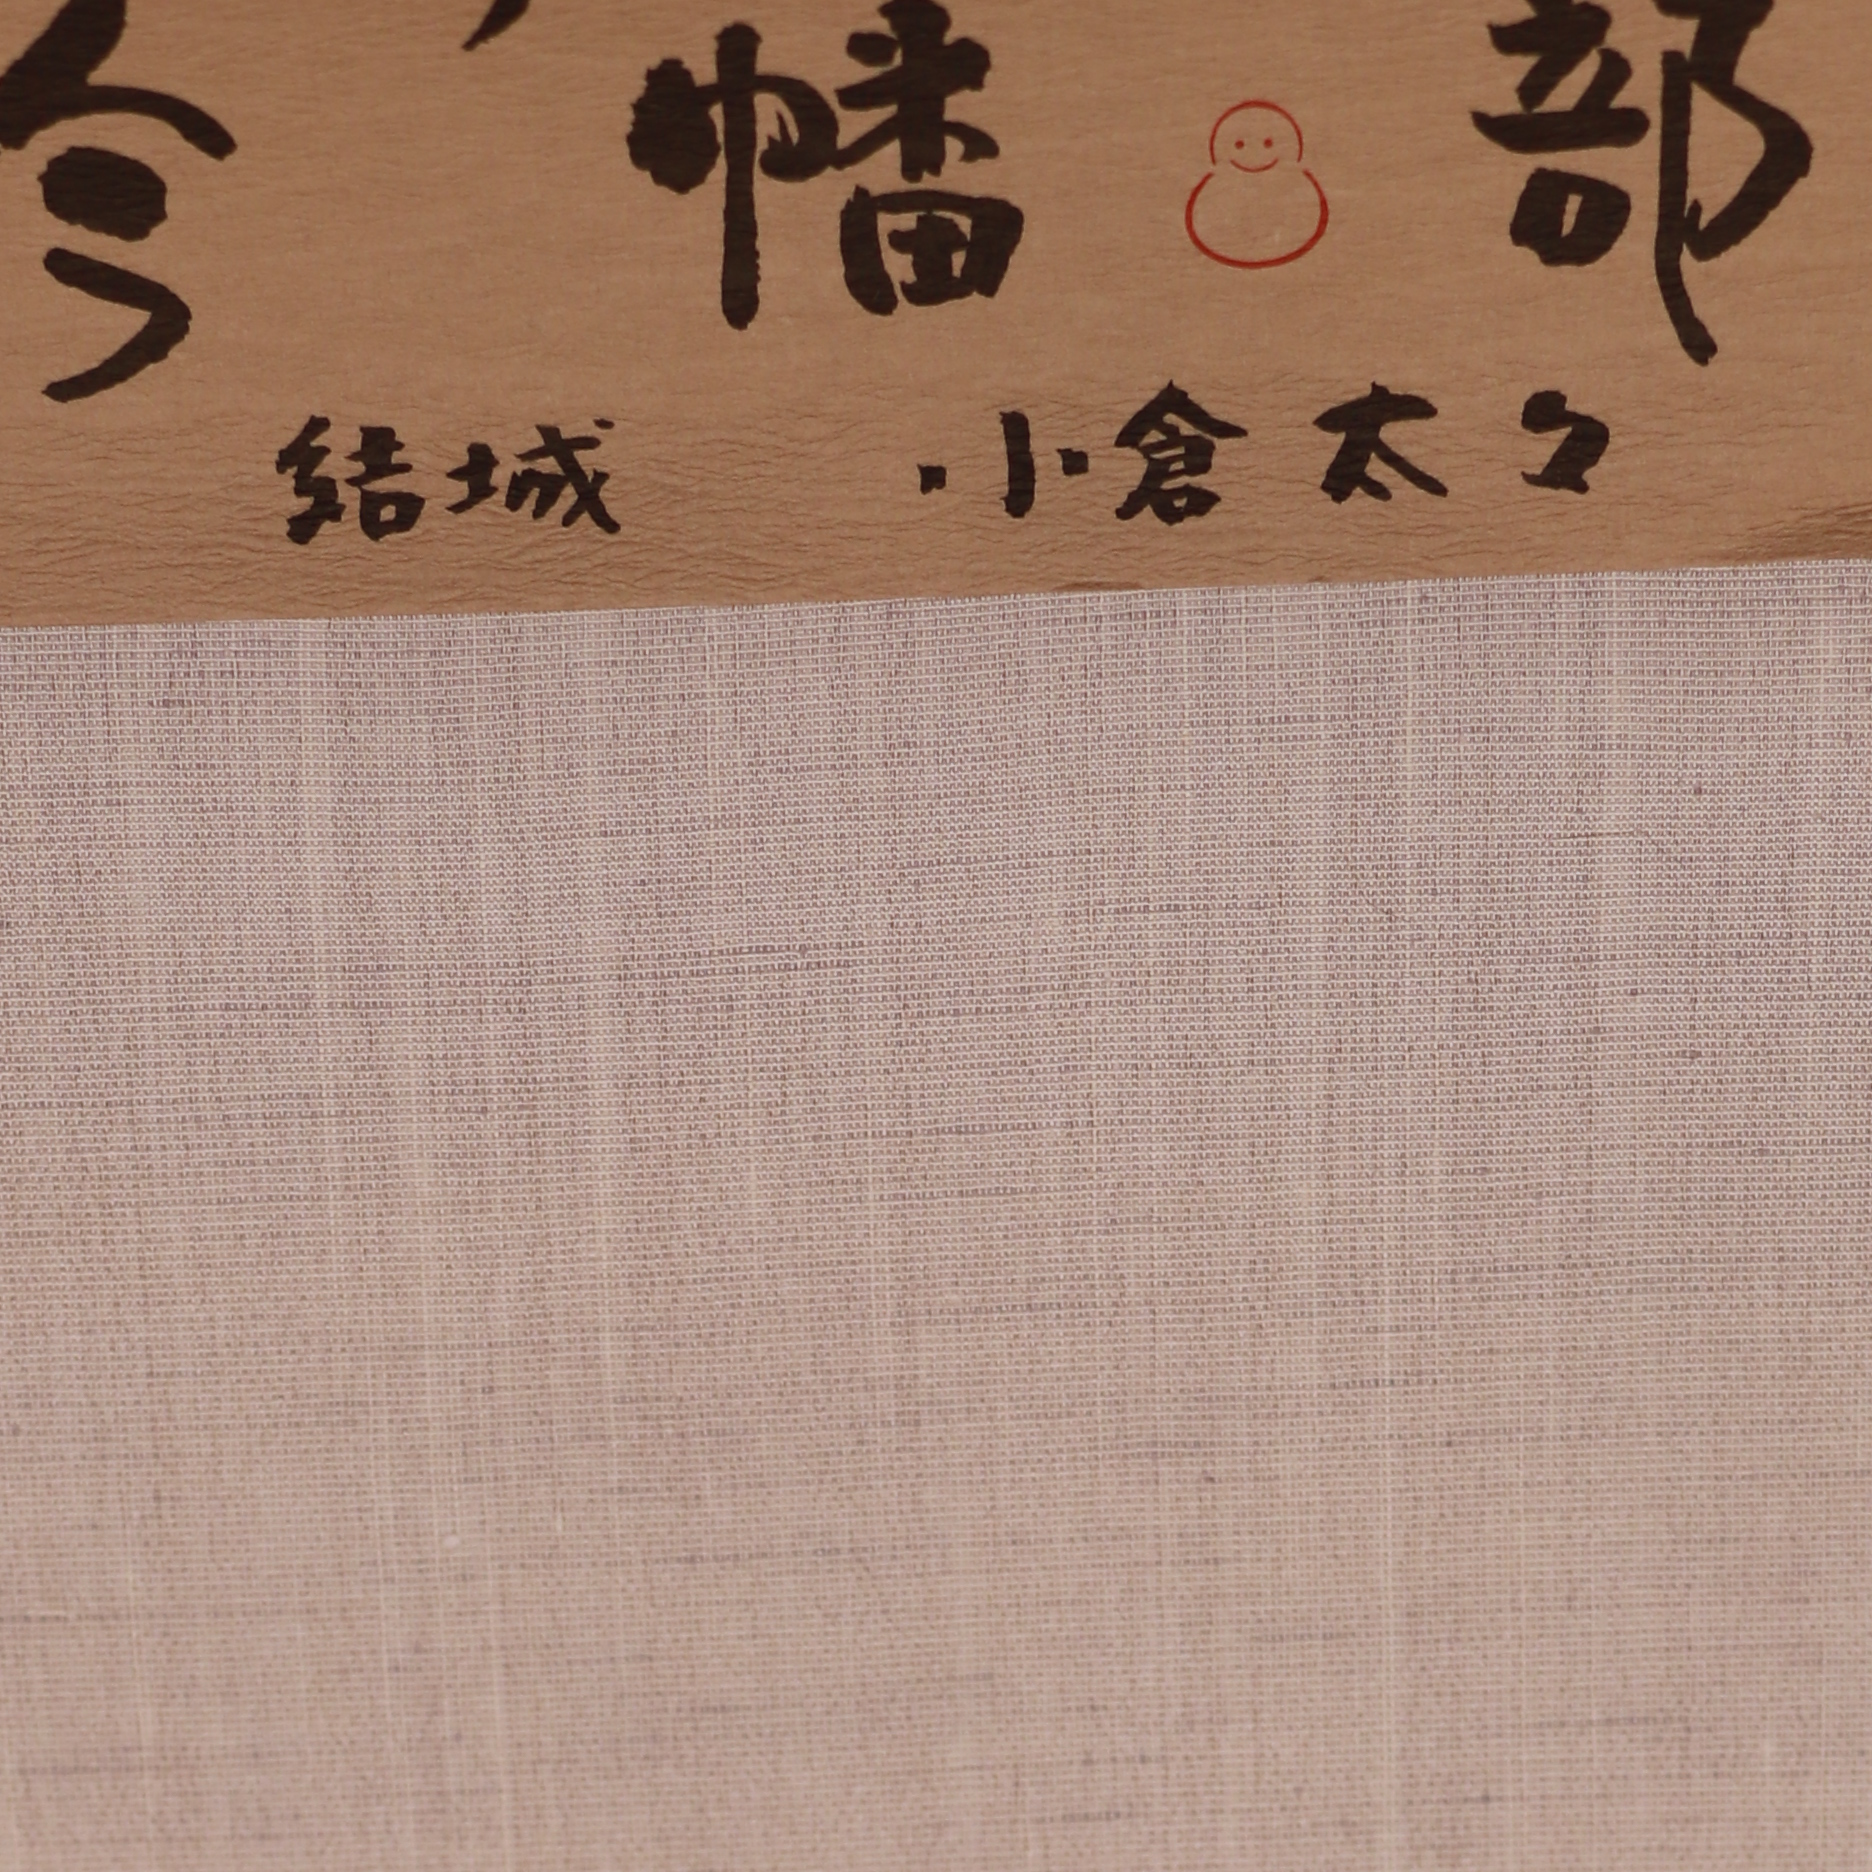 幡 部
結城 小倉太々